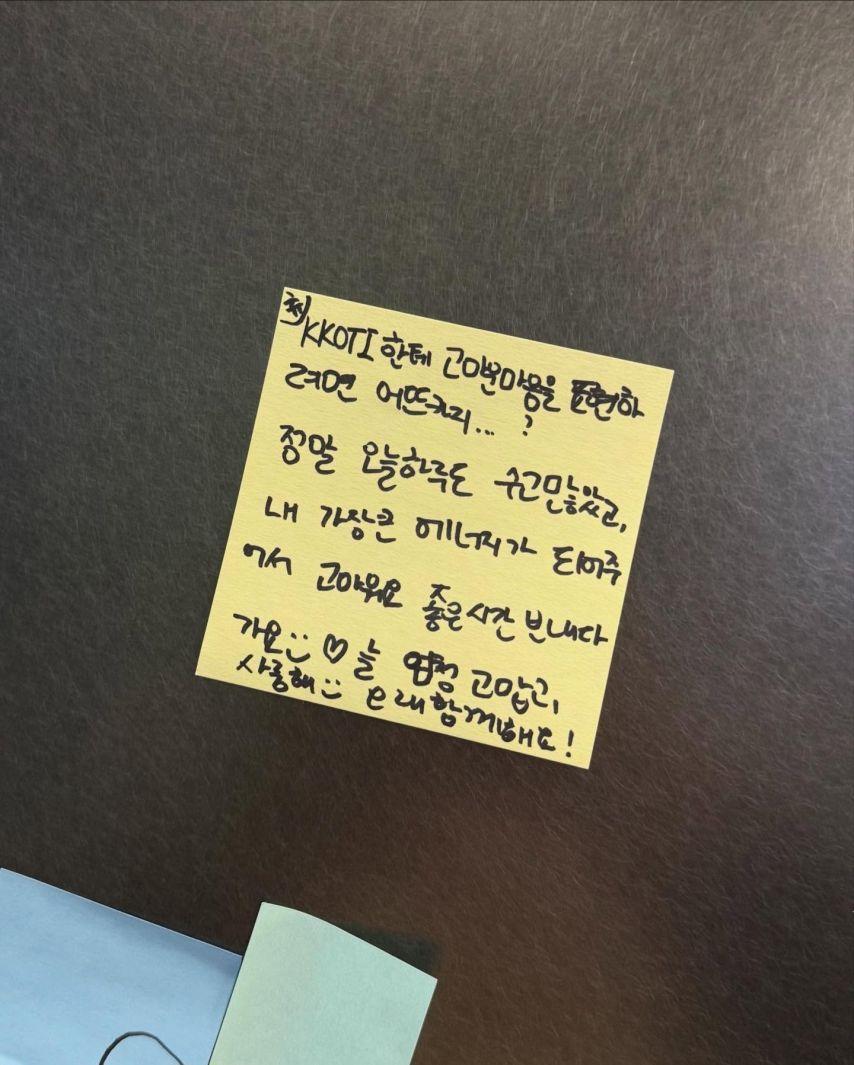 KKOTI 한테 고마운마음을 표현하
려면 어뜨카지... ?
정말 오늘하루도 수고많았고,
내 가장큰 에너지가 되어주
어서 고마워요 좋은시간 보내다
가요 :) ♡ 늘 엄청 고맙고,
사랑해 :) 오래 함께해요!